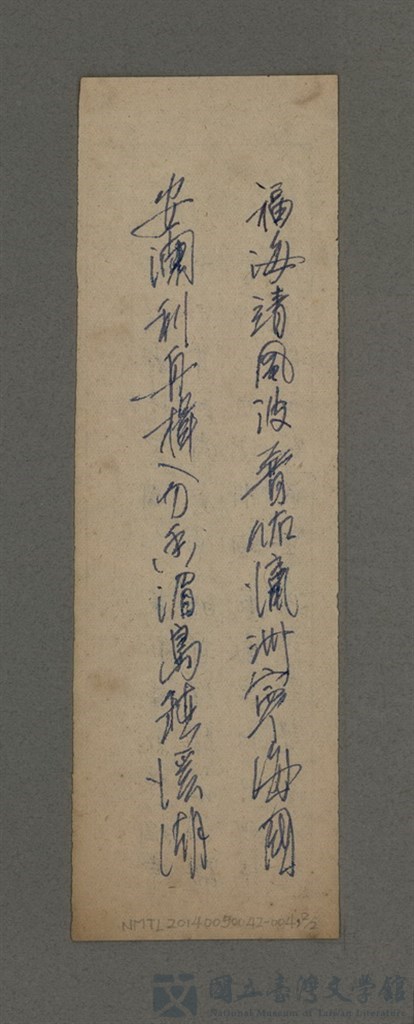 福海靖風波普佑瀛洲寧海國
安瀾利舟楫分香湄島鎮溪湖
NMTL20140050042-004
國立臺灣文學館
National Museum of Taiwan Literature